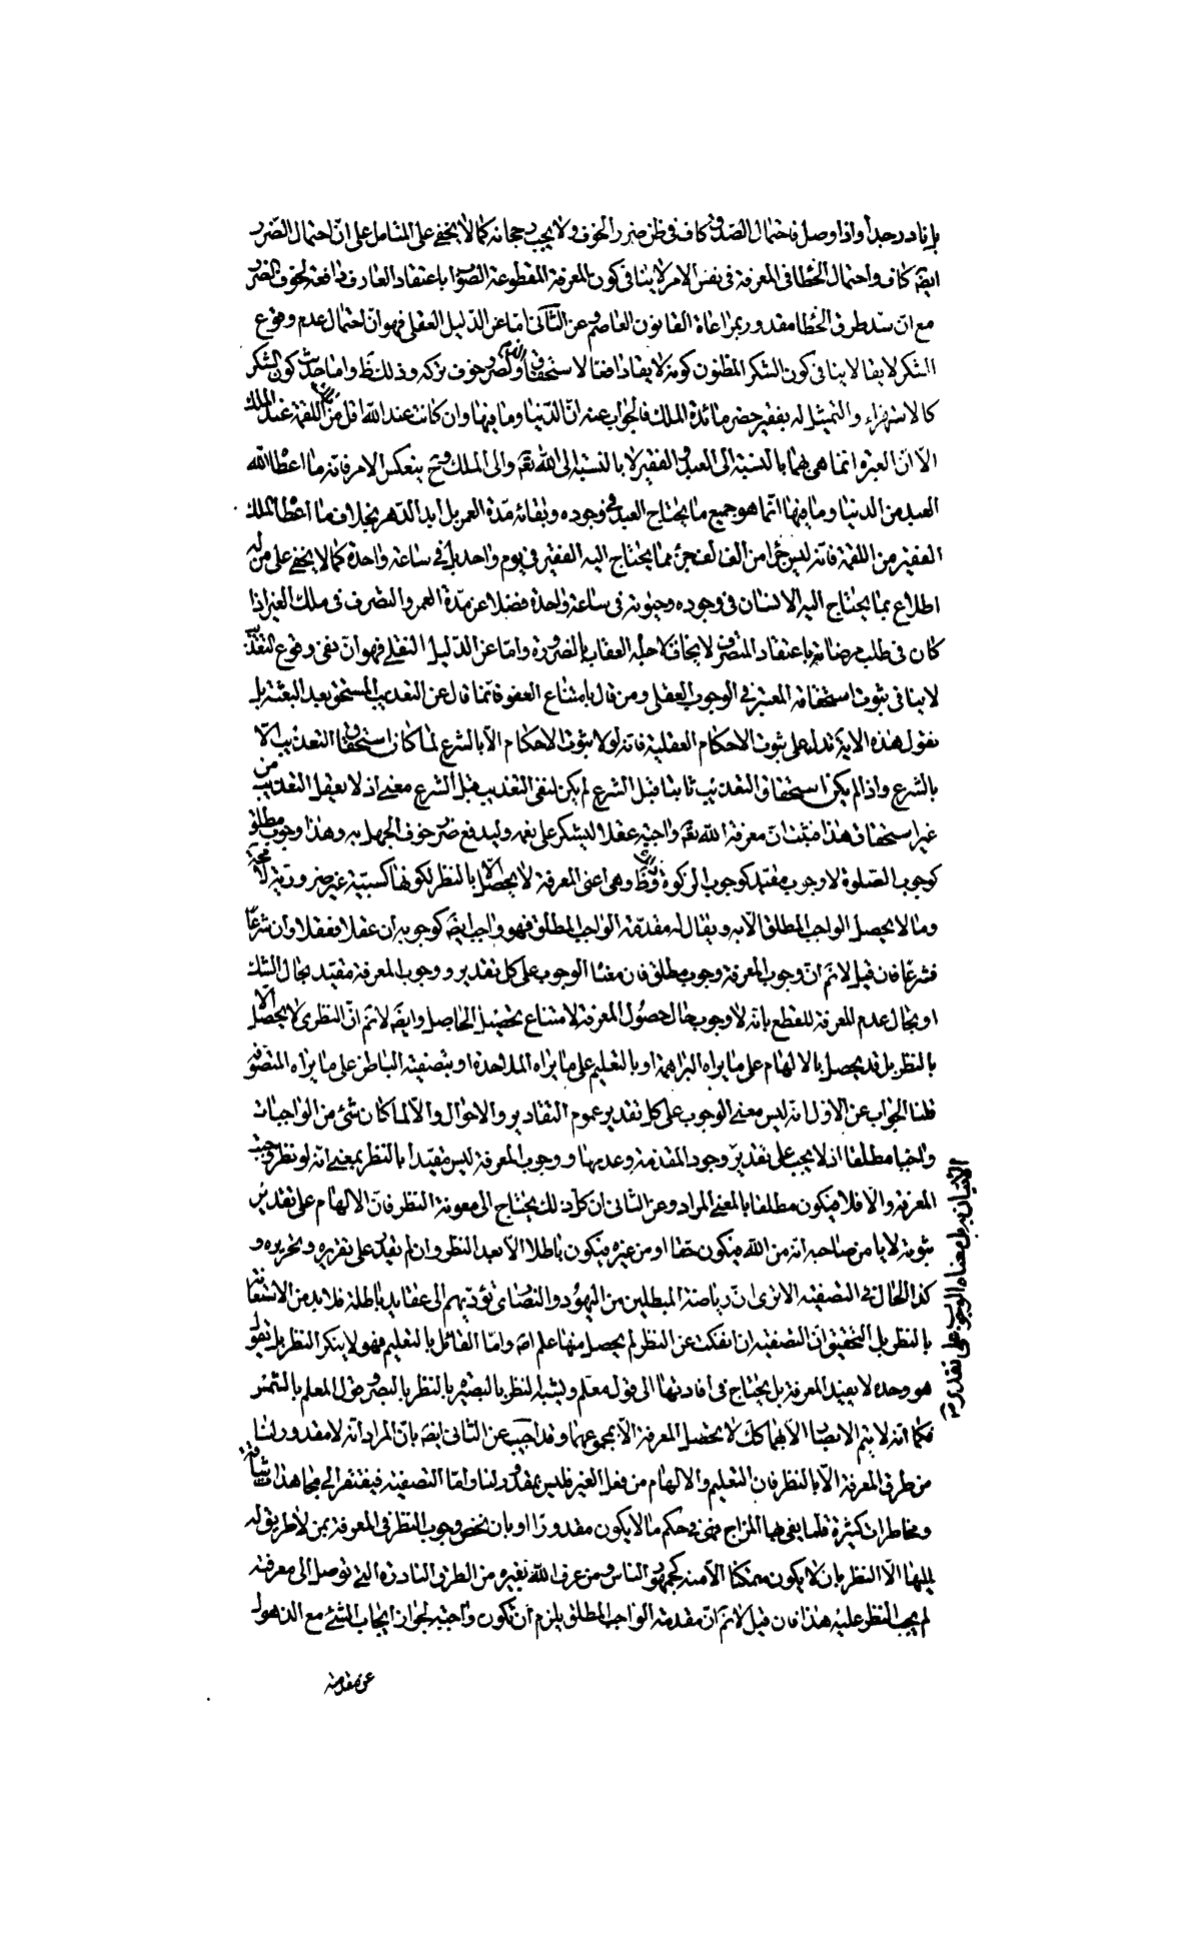 بل نادر جدا واذا وصل فاحتمال الصدق كاف في ظن ضرر الخوف ولا يجب رجحانه كما لا يخفى على المتأمل على ان احتمال الضرر
ايضا كاف واحتمال الخطا في المعرفة في نفس الامر لا ينافي كون المعرفة المقطوعة الصواب باعتقاد العارف دافعة لخوف الضرر
مع ان سد طرق الخطا مقدور بمراعاة القانون العاصم وعن الثاني اما عن الدليل العقلي فهو ان احتمال عدم وقوع
الشكر لايقا لا ينافي كون الشكر المظنون كونه لايقا دافعا لاستحقاق الذم ولضرر خوف تركه وذلك ظ واما حديث كون الشكر
كالاستهزاء والتمثيل له بفقير حضر مائدة الملك فالجواب عنه ان الدنيا وما فيها وان كانت عند الله اقل من اللقمة عند الملك
الا ان العبرة انما هي بهما بالنسبة الى العبد والفقير لا بالنسبة الى الله تعالى والى الملك وح ينعكس الامر فانه ما اعطا الله
العبد من الدنيا وما فيها انما هو جميع ما يحتاج العبد في وجوده وبقائه مدة العمر بل ابد الدهر بخلاف ما اعطا الملك
الفقير من اللقمة فانه ليس جزءا من الف الف جزء مما يحتاج اليه الفقير في يوم واحد بل في ساعة واحدة كما لا يخفى على من له
اطلاع بما يحتاج اليه الانسان في وجوده وحيوته في ساعة واحدة فضلا عن مدة العمر والتصرف في ملك الغير اذا
كان في طلب مرضاته باعتقاد المتصرف لا يخاف لاجله العقاب بالضرورة واما عن الدليل النقلي فهو ان نفي وقوع التعذيب
لا ينافي ثبوت استحقاقه المعتبر في الوجوب العقلي ومن قال بامتناع العفو فانما قال عن التعذيب المستحق بعد البعثة بل
نقول هذه الاية تدل على ثبوت الاحكام العقلية فانه لولا ثبوت الاحكام الا بالشرع لما كان استحقاق التعذيب الا
بالشرع واذا لم يكن استحقاق التعذيب ثابتا قبل الشرع لم يكن لنفي التعذيب قبل الشرع معنى اذ لا يعقل التعذيب من
غير استحقاق هذا فثبت ان معرفة الله تعالى واجبة عقلا ليشكر على نعمه وليدفع ضرر خوف الجهل به وهذا وجوب مطلق
كوجوب الصلوة لا وجوب مقيد كوجوب الزكوة وظ وهي اعني المعرفة لا يحصل الا بالنظر لكونها كسبية غير ضرورية
وما لا يحصل الواجب المطلق الا به ويقال له مقدمة الواجب المطلق فهو واجب ايضا كوجوبه ان عقلا فعقلا وان شرعا
فشرعا فان قيل لا نم ان وجوب المعرفة وجوب مطلق فان معنا الوجوب على كل تقدير ووجوب المعرفة مقيد بحال الشك
او بحال عدم المعرفة للقطع بانه لا وجوب حال حصول المعرفة لامتناع تحصيل الحاصل وايضا لا نم ان النظري لا يحصل الا
بالنظر بل قد يحصل بالالهام على ما يراه البراهمة او بالتعليم على ما يراه الملاحدة او بتصفية الباطن على ما يراه المتصوفة
قلنا الجواب عن الاول انه ليس معنى الوجوب على كل تقدير عموم التقادير والاحوال والا لما كان شئ من الواجبات
واجبا مطلقا اذ لا يجب على تقدير وجود المقدمة وعدمها ووجوب المعرفة ليس مقيدا بالنظر بمعنى انه لو نظر وجبت
المعرفة والا فلا فيكون مطلقا بالمعنى المراد وعن الثاني ان كل ذلك يحتاج الى معونة النظر فان الالهام على تقدير
ثبوته لا يامن صاحبه انه من الله فيكون حقا او من غيره فيكون باطلا الا بعد النظر وان لم يقدر على تقريره وتحريره و
كذا الحال في التصفية الا ترى ان رياضة المبطلين من اليهود والنصارى تؤديهم الى عقايد باطلة فلا بد من الاستعانة
بالنظر بل التحقيق ان التصفية ان انفكت عن النظر لم يحصل منها علم اصلا واما القائل بالتعليم فهو لا ينكر النظر بل يقول
هو وحده لا يفيد المعرفة بل يحتاج في افادتها الى قول معلم ويشبه النظر بالبصيرة بالنظر بالبصر وقول المعلم بالشمس
فكما انه لا يتم الابصار الا بهما كك لا يحصل المعرفة الا بمجموعهما وقد اجيب عن الثاني ايضا بان المراد انه لا مقدور لنا
من طرق المعرفة الا بالنظر فان التعليم والالهام من فعل الغير فليس بمقدور لنا واما التصفية فيفتقر الى مجاهدات شاقة
ومخاطرات كثيرة قلما يفي بها المزاج فهي في حكم ما لا يكون مقدورا او بان نخص وجوب النظر في المعرفة بمن لا طريق له
اليها الا النظر بان لا يكون متمكنا الا منه كجمهور الناس ومن عرف الله بغيره من الطرق النادرة التي توصل الى معرفته
لم يجب النظر عليه هذا فان قيل لا نم ان مقدمة الواجب المطلق يلزم ان تكون واجبة لجواز ايجاب الشئ مع الذهول
عن مقدمته
الاتيان به بل معناه الوجوب على تقدير